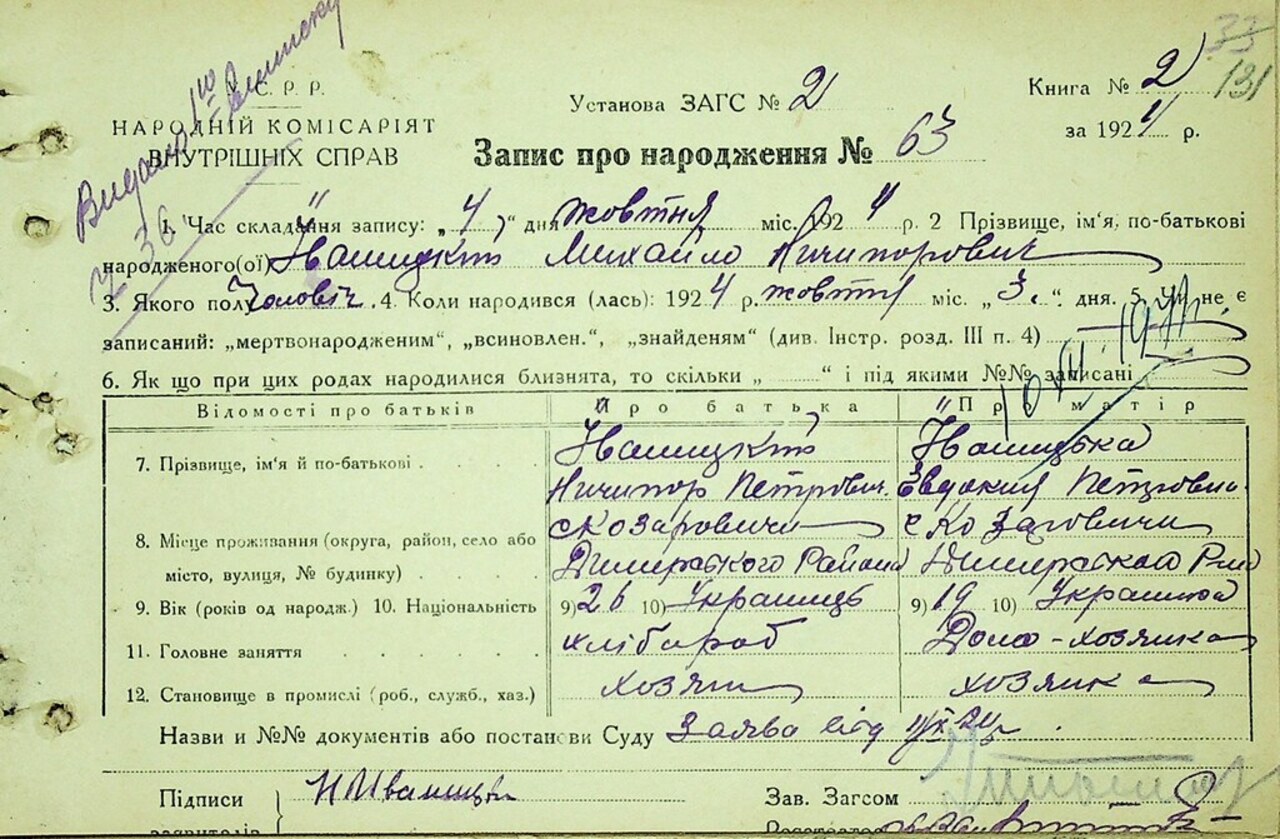 Видано
33
131
У. С. Р. Р.
НАРОДНІЙ КОМІСАРІЯТ
ВНУТРІШНІХ СПРАВ
Установа ЗАГС № 2
Книга № 2
за 1924 р.
Запис про народження № 63
1. Час складання запису: „4“ дня жовтня міс. 1924 р. 2 Прізвище, ім'я, по-батькові
народженого(ої) Івашицкій Михайло Ничипорович
3. Якого полу Чоловіч. 4. Коли народився (лась): 1924 р. жовтня міс. „3.“ дня. 5. Чи не є
записаний: „мертвонародженим“, „всиновлен.“, „знайденям“ (див. Інстр. розд. III п. 4)
6. Як що при цих родах народилися близнята, то скільки „ “ і під якими №№ записані
Відомості про батьків Про батька Про матір
7. Прізвище, ім'я й по-батькові Івашицкій Івашицька
Ничипор Петрович. Евдокия Петровна
8. Місце проживання (округа, район, село або с Козаровичи с Козаровичи
місто, вулиця, № будинку) Димерського Района Димерського
9. Вік (років од народж.) 10. Національність 9) 26 10) Украинць 9) 19 10) Украинка
11. Головне заняття хлібароб Дома-хозяика
12. Становище в промислі (роб., служб., хаз.) хозяин хозяика
Назви и №№ документів або постанови Суду Заява від
Підписи Н Ивашицки
Зав. Загсом
заявителів